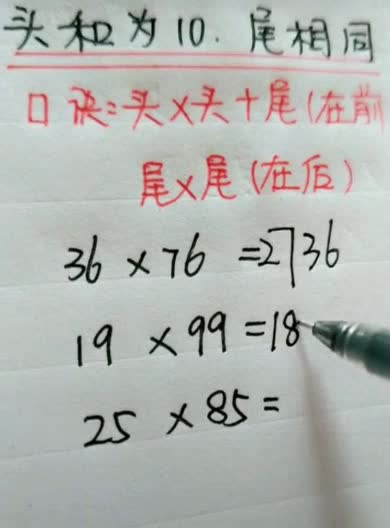 头和为10.尾相同
口诀:头×头+尾(在前
尾×尾(在后)
36×76=2736
19×99=18
25×85=